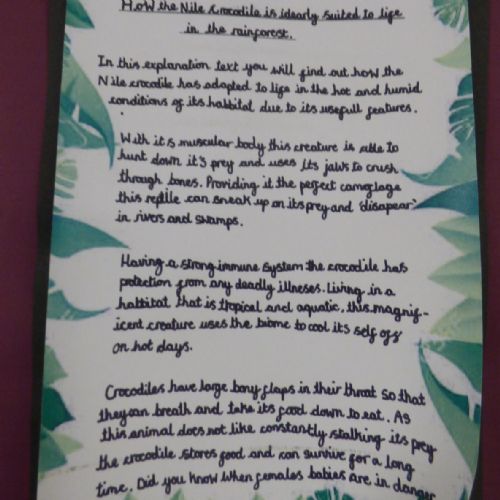 How the Nile Crocodile is idearly suited to life
in the rainforest.
In this explanation text you will find out how the
Nile crocodile has adapted to life in the hot and humid
conditions of its habbital due to its usefull features.
With it's muscular body this creature is able to
hunt down it's prey and uses its jaws to crush
through bones. Providing it the perfect camoflage
this reptile can sneak up on its prey and 'disapear'
in rivers and swamps.
Having a strong immune system the crocodile has
protection from any deadly illneses. Living in a
habbitat that is tropical and aquatic, this magnif-
icent creature uses the biome to cool its self off
on hot days.
Crocodiles have large bony flaps in their throat so that
they can breath and take its food down to eat. As
this animal does not like constantly stalking its prey
the crocodile stores food and can survive for a long
time. Did you know when females babies are in danger